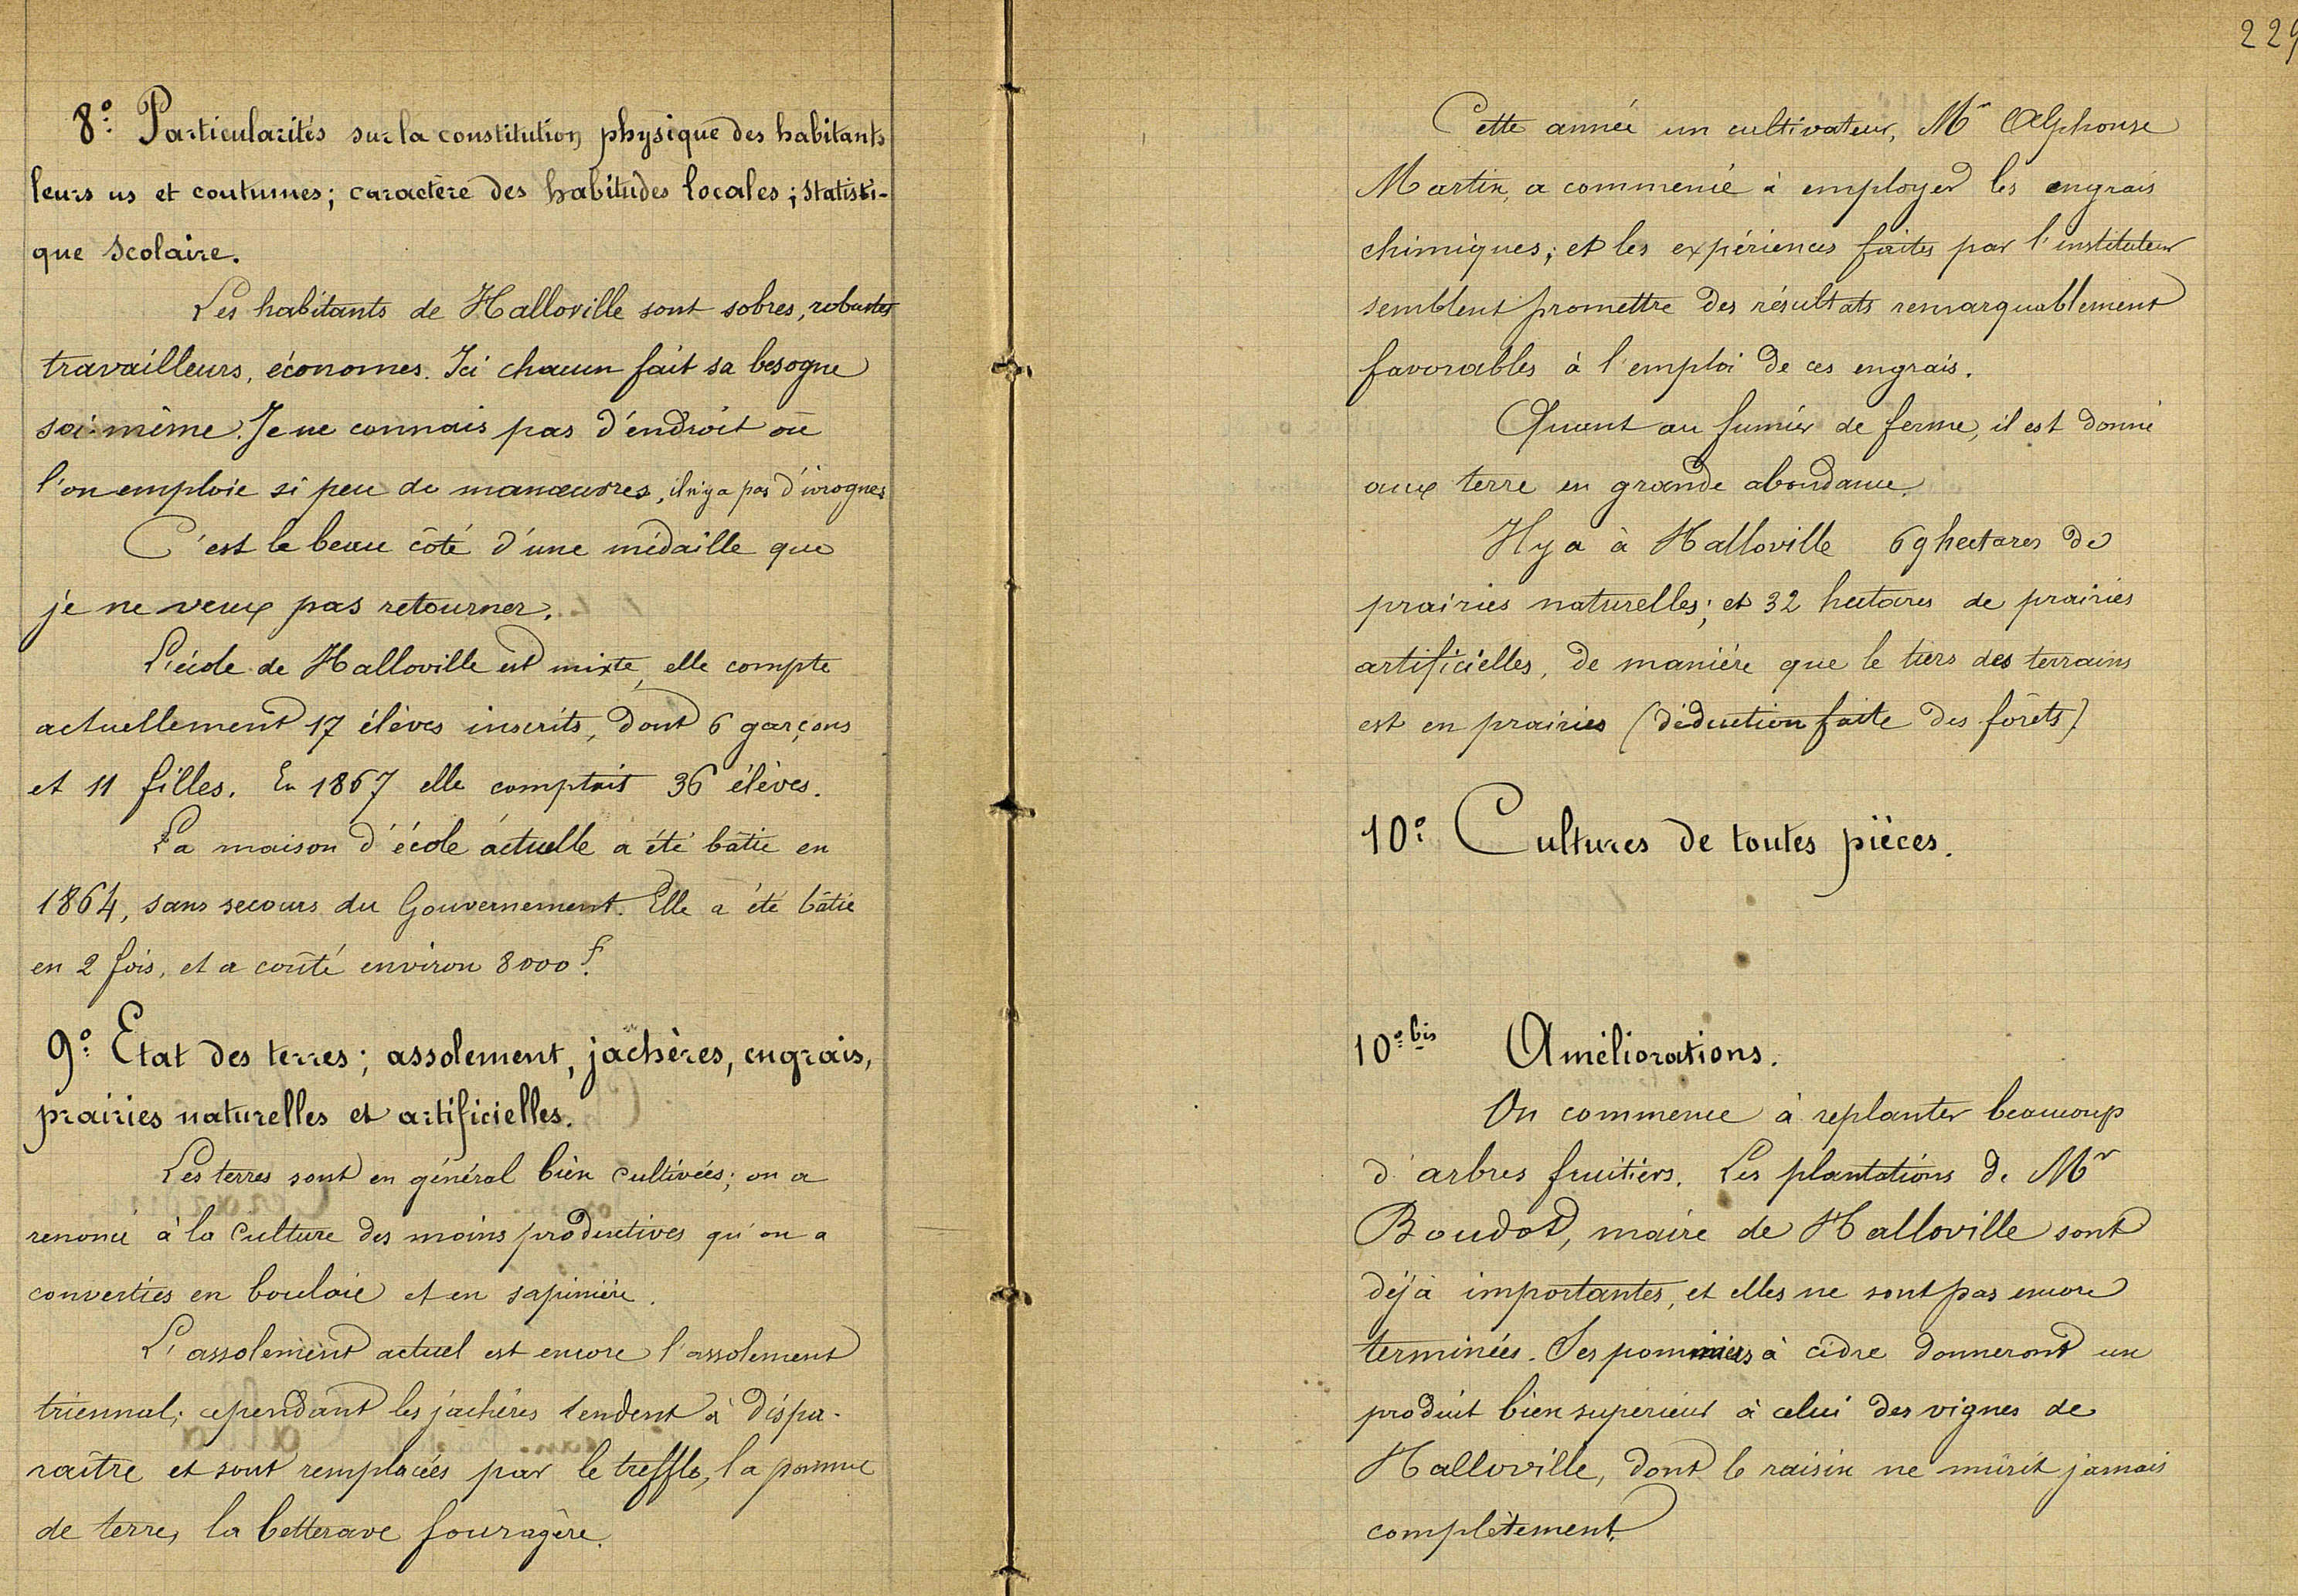 8° Particularités sur la constitution physique des habitants
leurs us et coutumes; caractère des habitudes locales; statisti-
que scolaire.
Les habitants de Halloville sont sobres, robustes
travailleurs, économes. Ici chacun fait sa besogne
soi-même. Je ne connais pas d'endroit où
l'on emploie si peu de manœuvres, il n'y a pas d'ivrognes
C'est le beau côté d'une médaille que
je ne veux pas retourner.
L'école de Halloville est mixte, elle compte
actuellement 17 élèves inscrits, dont 6 garçons
et 11 filles. En 1867 elle comptait 36 élèves.
La maison d'école actuelle a été bâtie en
1864, sans secours du Gouvernement. Elle a été bâtie
en 2 fois, et a coûté environ 8000 f.
9° Etat des terres; assolement, jachères, engrais,
prairies naturelles et artificielles.
Les terres sont en général bien cultivées; on a
renoncé à la culture des moins productives qu'on a
converties en boulaie et en sapinière.
L'assolement actuel est encore l'assolement
triennal; cependant les jachères tendent à dispa-
raître et sont remplacées par le treffle, la pomme
de terre, la betterave fouragère.
229
Cette année un cultivateur, Mr Alphonse
Martin, a commencé à employer les engrais
chimiques; et les expériences faites par l'instituteur
semblent promettre des résultats remarquablement
favorables à l'emploi de ces engrais.
Quant au fumier de ferme, il est donné
aux terre en grande abondance.
Il y a à Halloville 69 hectares de
prairies naturelles; et 32 hectares de prairies
artificielles, de manière que le tiers des terrains
est en prairies (déduction faite des forêts)
10° Cultures de toutes pièces.
10° bis Améliorations.
On commence à replanter beaucoup
d'arbres fruitiers. Les plantations de Mr
Boudot, maire de Halloville sont
déjà importantes, et elles ne sont pas encore
terminées. Ses pommiers à cidre donneront un
produit bien supérieur à celui des vignes de
Halloville, dont le raisin ne mûrit jamais
complètement.